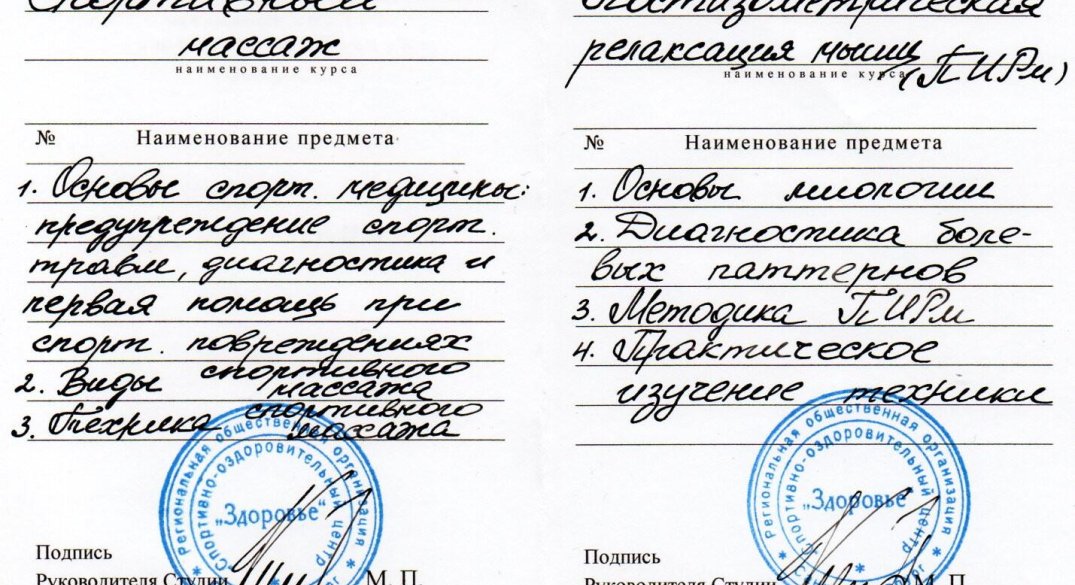 Спортивный
массаж
наименование курса
№ Наименование предмета
1. Основы спорт. медицины:
предупреждение спорт.
травм, диагностика и
первая помощь при
спорт. повреждениях
2. Виды спортивного
массажа
3. Техника спортивного
массажа
Региональная общественная организация
Спортивно-оздоровительный центр
„Здоровье“
Подпись
Руководителя Студии М. П.
Постизометрическая
релаксация мышц
(ПИРм)
наименование курса
№ Наименование предмета
1. Основы миологии
2. Диагностика боле-
вых паттернов
3. Методика ПИРм
4. Практическое
изучение техники
Региональная общественная организация
Спортивно-оздоровительный центр
„Здоровье“
Подпись
Руководителя Студии М. П.